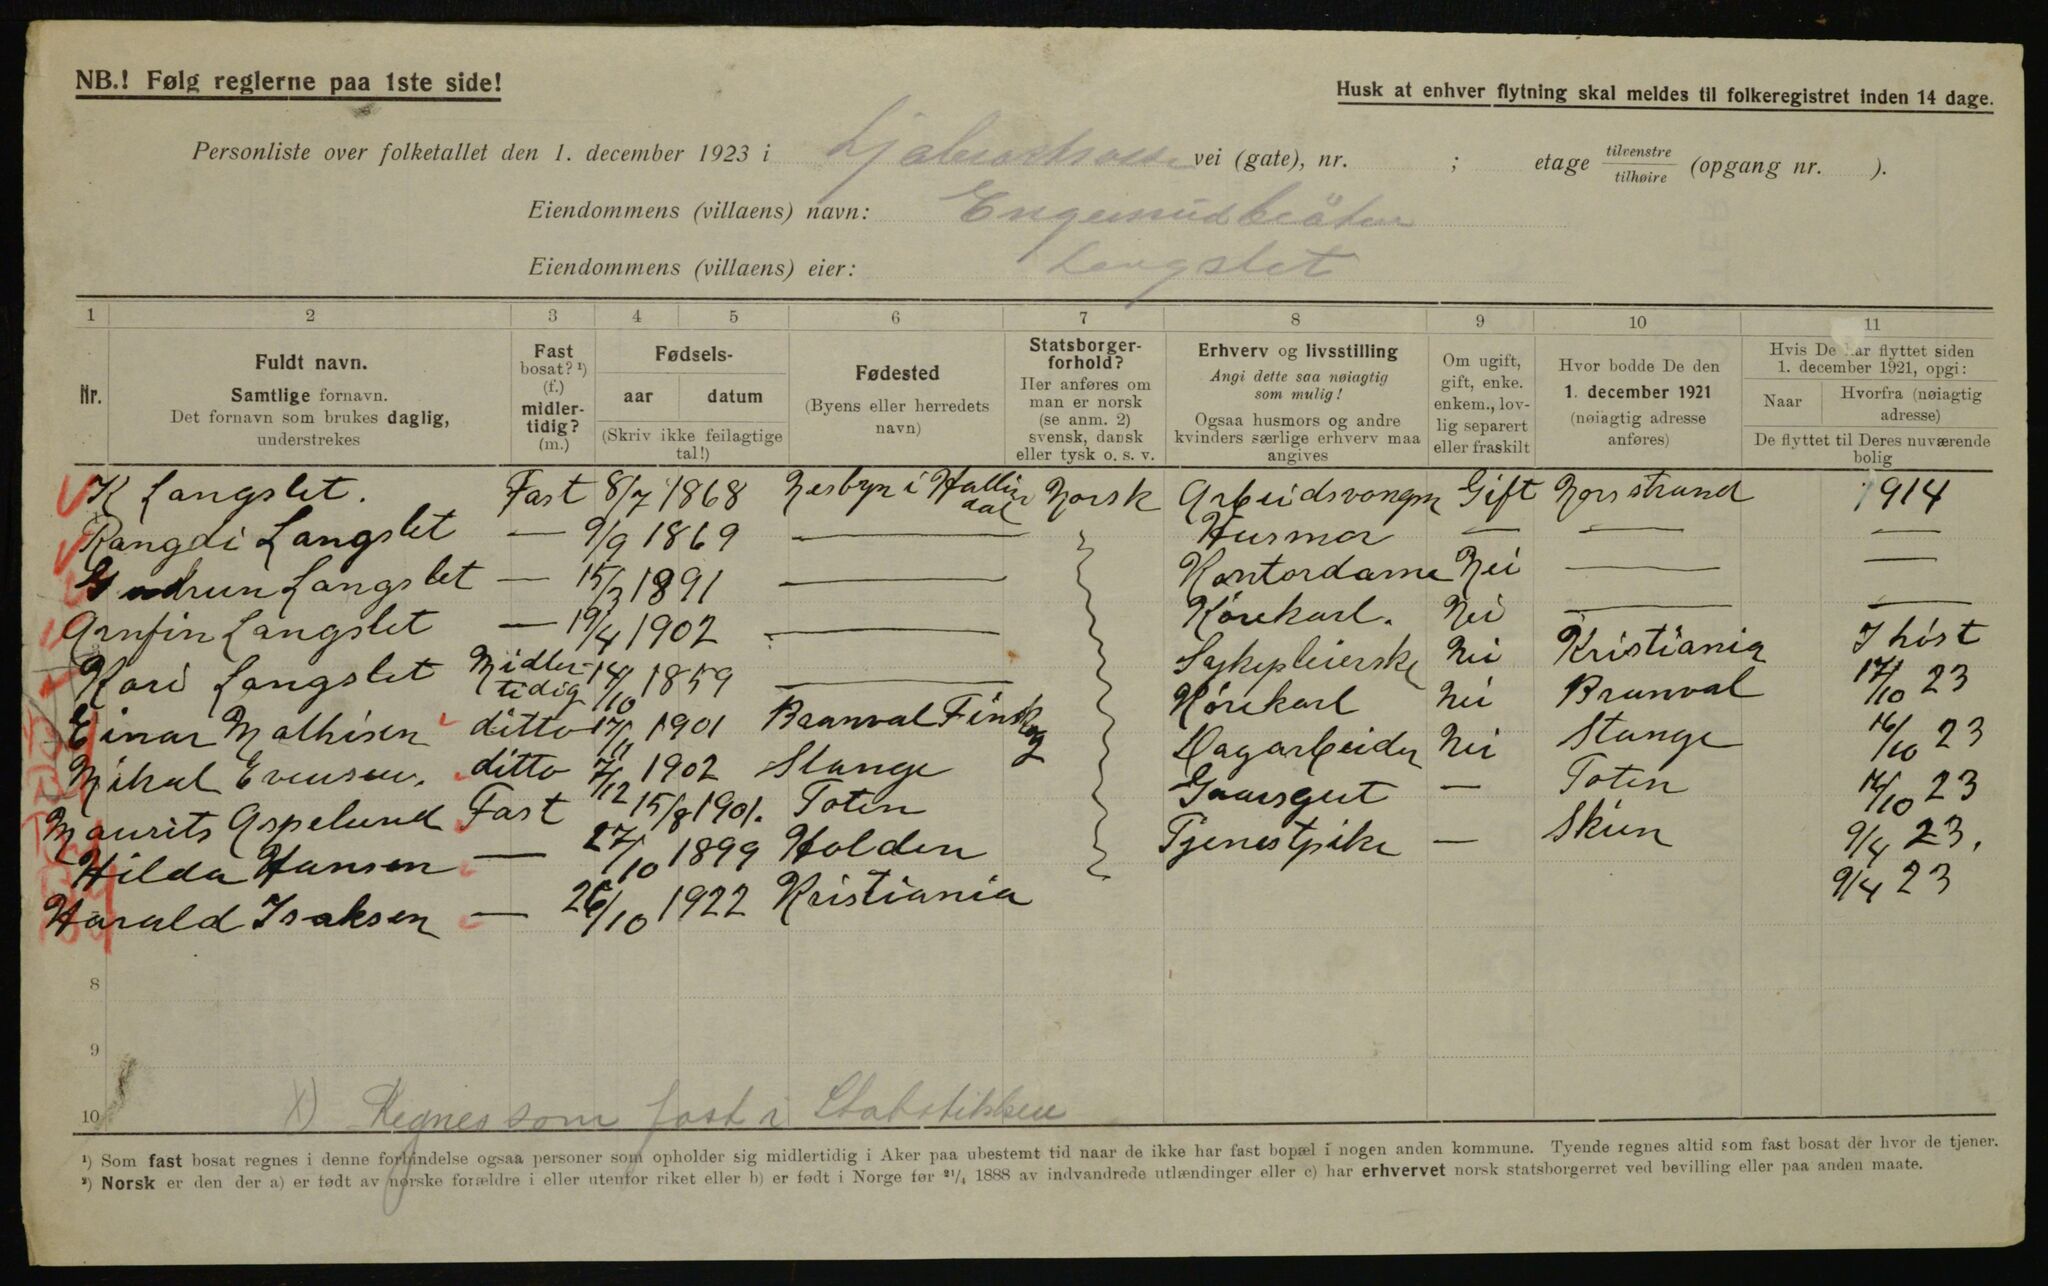 NB.! Følg reglerne paa 1ste side!
Husk at enhver flytning skal meldes til folkeregistret inden 14 dage.
Personliste over folketallet den 1. december 1923 i vei (gate), nr. ; etage tilvenstre tilhøire (opgang nr. ).
Eiendommens (villaens) navn:
Eiendommens (villaens) eier: Langslet
1 2 3 4 5 6 7 8 9 10 11
Nr.
Fuldt navn.
Samtlige fornavn.
Det fornavn som brukes daglig,
understrekes
Fast
bosat? ¹)
(f.)
midler-
tidig?
(m.)
Fødsels-
aar datum
(Skriv ikke feilagtige
tal!)
Fødested
(Byens eller herredets
navn)
Statsborger-
forhold?
Her anføres om
man er norsk
(se anm. 2)
svensk, dansk
eller tysk o. s. v.
Erhverv og livsstilling
Angi dette saa nøiagtig
som mulig!
Ogsaa husmors og andre
kvinders særlige erhverv maa
angives
Om ugift,
gift, enke.
enkem., lov-
lig separert
eller fraskilt
Hvor bodde De den
1. december 1921
(nøiagtig adresse
anføres)
Hvis De har flyttet siden
1. december 1921, opgi:
Naar
Hvorfra (nøiagtig
adresse)
De flyttet til Deres nuværende
bolig
K Langslet. Fast 8/7 1868 Nesbyn i Hallin Norsk Gift Norstrand 1914
Rangdi Langslet — 9/9 1869 — Husmor — — —
Gudrun Langslet — 15/3 1891 — Kontordame Nei — —
Arnfin Langslet — 19/4 1902 — Körekarl. Nei — —
Kari Langslet Midler-tidig 14/10 1859 — Sykepleierske Nei Kristiania I höst
Einar Mathisen ditto 17/11 1901 Branval Finskog Körekarl Nei Branval 17/10 23
Mikal Evensen. ditto 7/12 1902 Stange Dagarbeider Nei Stange 16/10 23
Maurits Aspelund Fast 15/8 1901. Toten Gaarsgut — Toten 14/10 23
Hilda Hansen — 27/10 1899 Holden Tjenestpike — Skien 9/4 23.
Harald Isaksen — 26/10 1922 Kristiania 9/4 23
8
9
10
X) Regnes som fast i Statstikken
¹) Som fast bosat regnes i denne forbindelse ogsaa personer som opholder sig midlertidig i Aker paa ubestemt tid naar de ikke har fast bopæl i nogen anden kommune. Tyende regnes altid som fast bosat der hvor de tjener.
²) Norsk er den der a) er født av norske forældre i eller utenfor riket eller b) er født i Norge før ²¹/₄ 1888 av indvandrede utlændinger eller c) har erhvervet norsk statsborgerret ved bevilling eller paa anden maate.